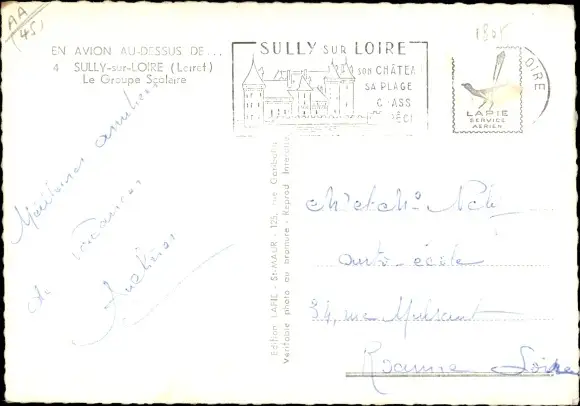 AA
(45)
EN AVION AU-DESSUS DE...
4 SULLY-sur-LOIRE (Loiret)
Le Groupe Scolaire
SULLY SUR LOIRE
SON CHÂTEA
SA PLAGE
OIRE
LAPIE
SERVICE
AERIEN
Meilleures amitiés
de vacances
Edition LAPIE - St-MAUR - 125, rue Garibaldi
Véritable photo au bromure - Reprod Interdite
M et Me
auto-école
34, rue Mulsant
Roanne Loire